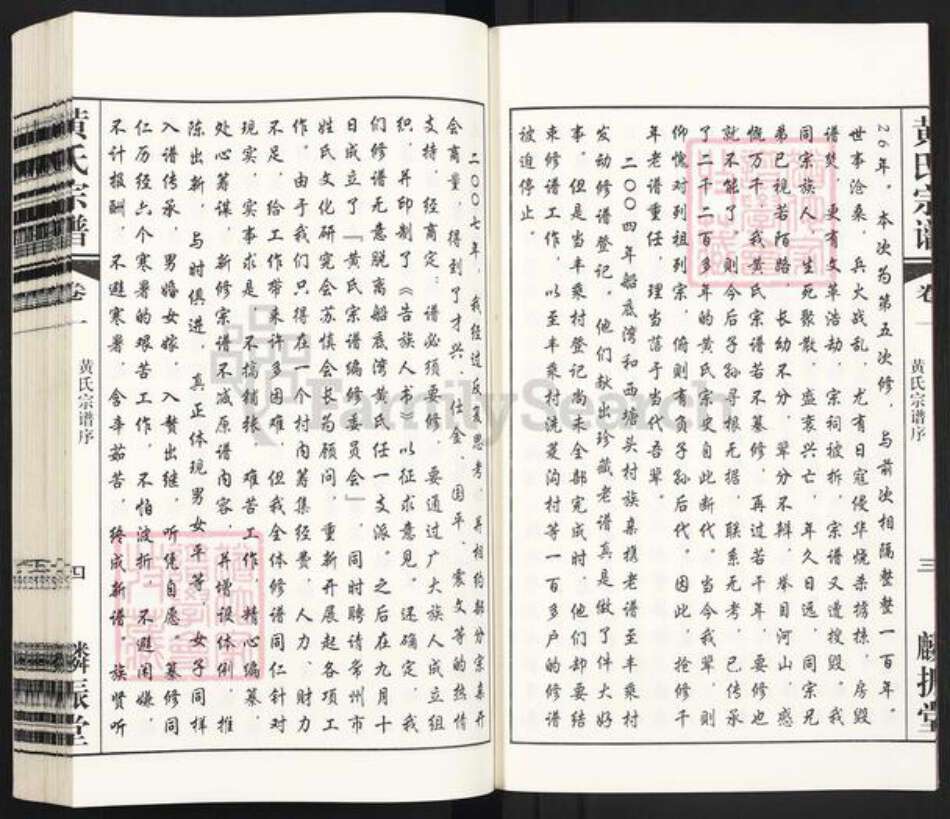 黄氏宗谱
卷一
黄氏宗谱序
三
麟振堂
26年。本次为第五次修,与前次相隔整整一百年。
世事沧桑,兵火战乱,尤有日寇侵华烧杀掳掠,房毁
谱焚,更有文革浩劫,宗祠被拆,宗谱又遭搜毁。我
同宗族人,生死聚散,盛衰兴亡,年久日远,同宗兄
弟已视若陌路,长幼不分,辈分不辩,举目河山,感
慨万千。我黄氏宗谱若不纂修,再过若干年,要修也
就不能了。则今后子孙寻根无据,联系无考,已传承
了二千二百多年的黄氏宗史自此断代。当今我辈,则
仰愧对列祖列宗,俯则有负子孙后代。因此,抢修千
年老谱重任,理当落于当代吾辈。
二〇〇四年船底湾和西塘头村族亲携老谱至丰乘村
发动修谱登记,他们献出珍藏老谱真是做了件大好
事,但是当丰乘村登记尚未全部完成时,他们却要结
束修谱工作,以至丰乘村洗菱沟村等一百多户的修谱
被迫停止。
二〇〇七年,我经过反复思考,并相约部分宗亲开
会商量,得到了才兴、仕金、国平、震文等的热情
支持,经商定:谱必须要修,要通过广大族人成立组
织,并印制了《告族人书》以征求意见。还确定,我
们修谱无意脱离船底湾黄氏任一支派。之后在九月十
日成立了「黄氏宗谱编修委员会」,同时聘请常州市
姓氏文化研究会苏慎会长为顾问,重新开展起各项工
作。由于我们只得在一个村内筹集经费,人力、财力
不足,给工作带来许多困难,但我全体修谱同仁针对
现实,实事求是,不搞铺张,难苦工作,精心编纂,
处心筹谋,新修宗谱不减原谱内容,并增设体例,推
陈出新,与时俱进,真正体现男女平等,女子同样
入谱传承,男婚女嫁,入赘出继,听凭自愿。纂修同
仁历经六个寒暑的艰苦工作,不怕波折,不避闲嫌,
不计报酬,不避寒暑,含辛茹苦,终成新谱,族贤听
黄氏宗谱
卷一
黄氏宗谱序
四
麟振堂
FamilySearch